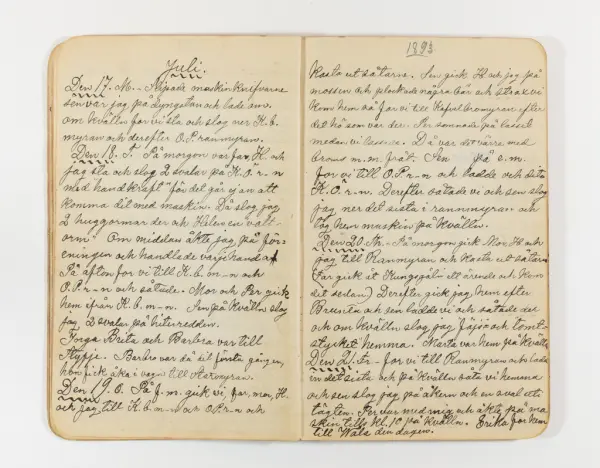 Juli.
Den 17. M. - Slipade maskinknifvarne
sen var jag på Lyngslån och lade om.
om kvällen for vi sta och slog ner K. b.
myran och derefter O. P. rannmyran.
Den 18. T. På morgon var far, H. och
jag sta och slog 2 svalar på K. o. r - n
med handkraft för det går ej an att
komma dit med maskin. Då slog jag
2 huggormar der och Halvar en "vall-
orm". Om middan åkte jag på för-
eningen och handlade varjehanda.
På afton for vi till K. b. m - n och
O. P. r - n och såtade. Mor och Per gick
hem ifrån K. b. m - n. Sen på kvälln slog
jag 2 svalar på
Brita och Barbro var till
Barbro var då dit första gången,
hon fick åka i vagn till
Den 19. O. På f. m. gick vi, far, mor, H.
och jag till K. b. m - n och O. P. r - n och
1893
kasta ut såtarne. Sen gick H. och jag på
mossen och plockade några bär och strax vi
kom hem så for vi till Kafvelbromyran efter
det hö som var der. Per somnade på lasset
medan vi lassade. Då var det värre med
broms m. m. fråt. Sen på e. m.
for vi till O. P. r - n och ladde och såta
K. O. r. n. Derefter såtade vi och sen slog
jag ner det sista i rannmyran och
tog hem maskin på kvälln.
Den 20. Th. - På morgon gick Mor, H. och
jag till Ranmyran och kasta ut såtarn
(Far gick åt Kungsgåln i ett ärende och kom
dit sedan) Derefter gick jag hem efter
och sen ladde vi och såtade der
och om kvälln slog jag och tomt-
stycket hemma. Marta var hem på kvälln
Den 21. Fr. - for vi till Ranmyran och lade
in det sista och på kvälln såta vi hemma
och sen slog jag på åkern och en sval uti
tägten. Per var med mig och åkte på ma
skin tills kl. 10 på kvälln. Erika for hem
till Wåls den dagen.